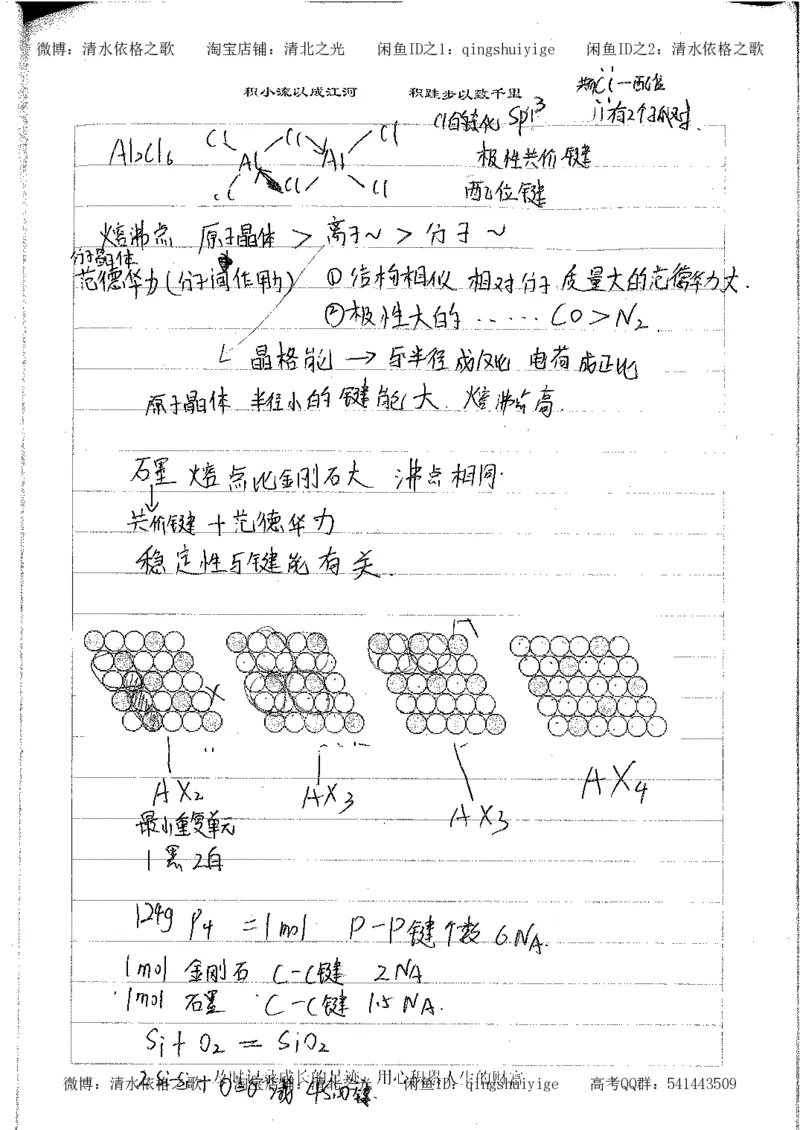 微博：清水依格之歌 淘宝店铺：清北之光 闲鱼ID之1：qingshuiyige 闲鱼ID之2：清水依格之歌
积小流以成江河 积跬步以致千里
Cl一配位
有2个孤对
Cl的杂化 Sp³
Al₂Cl₆
Cl Cl Cl
Al Al
Cl Cl Cl
极性共价键
两配位键
熔沸点 原子晶体 > 离子~ > 分子~
分子晶体
范德华力(分子间作用力) ①结构相似 相对分子质量大的范德华力大.
②极性大的 ...... CO>N₂
晶格能 → 与半径成反比 电荷成正比
原子晶体 半径小的键能大 熔沸点高.
石墨 熔点比金刚石大 沸点相同.
共价键+范德华力
稳定性与键能有关.
AX₂ AX₃ AX₃ AX₄
最小重复单元
1黑2白
124g P₄ =1mol P-P键个数 6NA.
1mol 金刚石 C-C键 2NA
1mol 石墨 C-C键 1.5NA.
Si+O₂=SiO₂
及时记录成长的足迹 用心积累人生的财富
微博：清水依格之歌 淘宝店铺：清北之光 闲鱼ID：qingshuiyige 高考QQ群：541443509